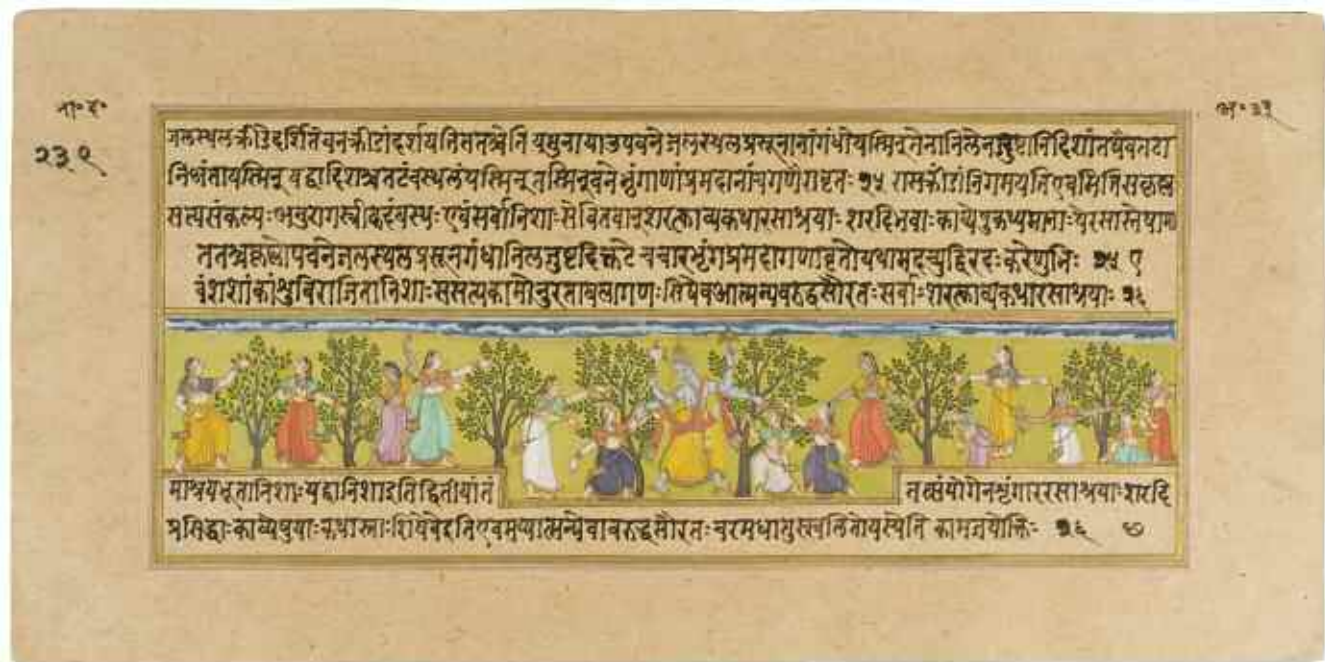 भा॰द॰
२३९
अ॰३३
जलस्थलक्रीडेदर्शितेवनक्रीडांदर्शयतिततश्चेति यमुनायाउपवने जलस्थलप्रसूनानांगंधोयस्मिन्तेनानिलेनजुष्टानिदिशांतथैवतटा
निअंतायस्मिन् यद्वादिशश्चतटंवस्थलंयस्मिन् तस्मिन्वनेभृंगाणांप्रमदानांचगणैरावृतः २५ रासक्रीडांनिगमयतिएवमितिसकृष्ण
सत्यसंकल्पः अनुरागस्त्रीकदंबस्थः एवंसर्वानिशाः सेवितवान् शरत्काव्यकथारसाश्रयाः शरदिभवाः काव्येषुकथ्यमानाः येरसास्तेषामा
ततश्चकृष्णोपवनेजलस्थलप्रसूनगंधानिलजुष्टदिक्तटे चचारभृंगप्रमदागणावृतोयथामदच्युद्द्विरदः करेणुभिः २५ ए
वंशशांकांशुविराजितानिशाः ससत्यकामोनुरताबलागणः सिषेवआत्मन्यवरुद्धसौरतः सर्वाः शरत्काव्यकथारसाश्रयाः २६
माश्रयभूतानिशाः यद्वानिशाइतिद्वितीयांतं
तत्संयोगेनशृंगाररसाश्रयाः शरदि
प्रसिद्धाः काव्येषुयाः कथास्ताः सिषेवेइतिएवमप्यात्मन्येवावरुद्धसौरतः चरमधातुस्खलितोयस्येति कामजयोक्तिः २६